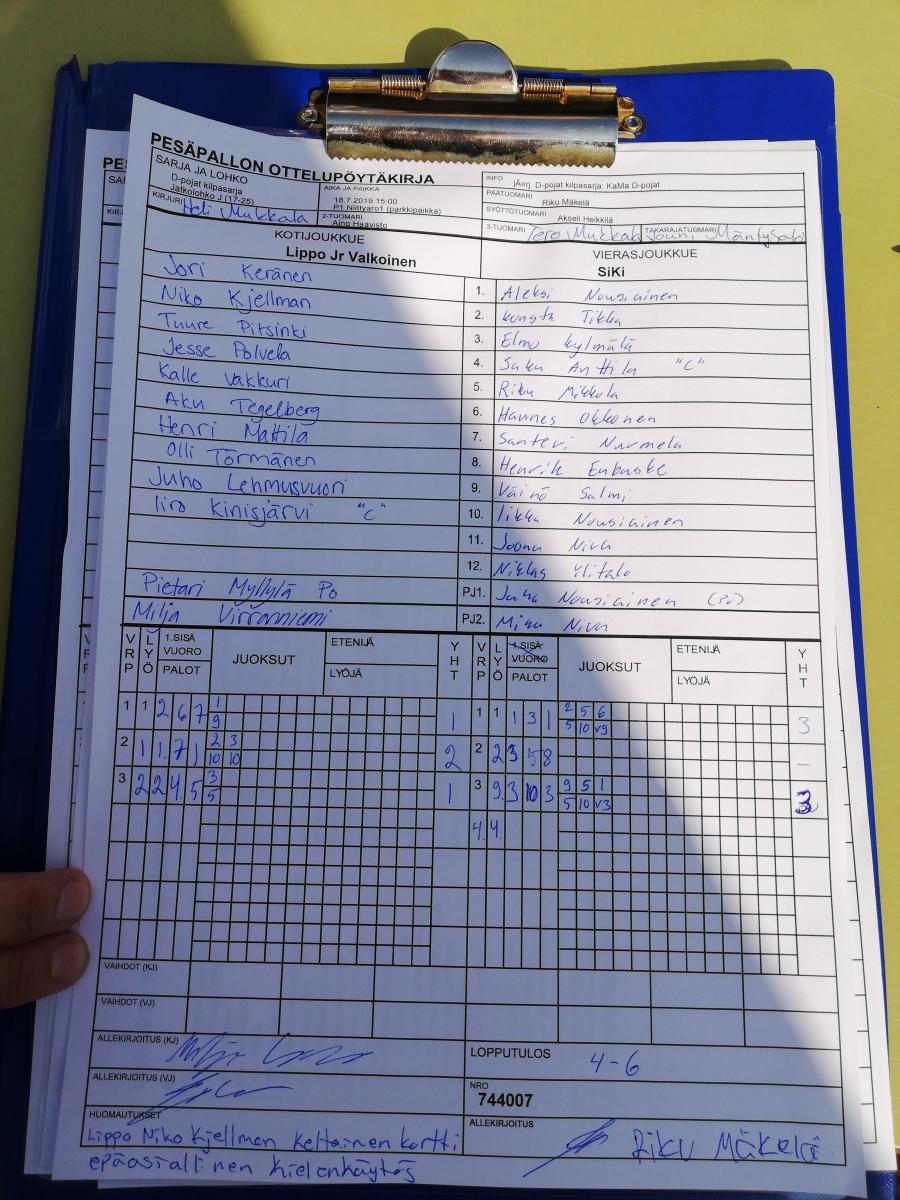 PESÄPALLON OTTELUPÖYTÄKIRJA
SARJA JA LOHKO
D-pojat kilpasarja
Jatkolohko J (17-25)
KIRJURI Heli Mukkala
AIKA JA PAIKKA
18.7.2019 15:00
P1 Niittyaro1 (parkkipaikka)
2-TUOMARI
Aino Haavisto
INFO
jÄrj. D-pojat kilpasarja: KaMa D-pojat
PÄÄTUOMARI
Riku Mäkelä
SYÖTTÖTUOMARI
Akseli Heikkilä
3-TUOMARI Tero Mukkala TAKARAJATUOMARI Jouni Mäntysaari
KOTIJOUKKUE
Lippo Jr Valkoinen
VIERASJOUKKUE
SiKi
Jori Keränen 1. Aleksi Nousiainen
Niko Kjellman 2. Konsta Tikka
Tuure Pitsinki 3. Elmo Kylmälä
Jesse Polvela 4. Saku Anttila "C"
Kalle Vakkuri 5. Riku Mikkola
Aku Tegelberg 6. Hannes Okkonen
Henri Mattila 7. Santeri Nurmela
Olli Törmänen 8. Henrik
Juho Lehmusvuori 9. Väinö Salmi
Iiro Kinisjärvi "C" 10. Iikka Nousiainen
11. Joona Niva
12. Niklas Ylitalo
Pietari Myllylä Po PJ1. Juha Nousiainen (Po)
Milja Virranniemi PJ2. Mika Niva
VRP LYÖ 1.SISÄ VUORO PALOT JUOKSUT ETENIJÄ LYÖJÄ YHT VRP LYÖ 1.SISÄ VUORO PALOT JUOKSUT ETENIJÄ LYÖJÄ YHT
1 1 2 6 7 1 1 1 1 3 1 2 5 6 3
9 5 10 v9
2 11. 7 1 2 3 2 2 2 3 5 8 –
10 10
3 2 2 4 5 3 1 3 9. 3 10 3 9 5 1 3
5 5 10 v3
4. 4.
VAIHDOT (KJ)
VAIHDOT (VJ)
ALLEKIRJOITUS (KJ)
LOPPUTULOS 4-6
ALLEKIRJOITUS (VJ)
NRO
744007
HUOMAUTUKSET
ALLEKIRJOITUS
Riku Mäkelä
Lippo Niko Kjellman keltainen kortti
epäasiallinen kielenkäytös